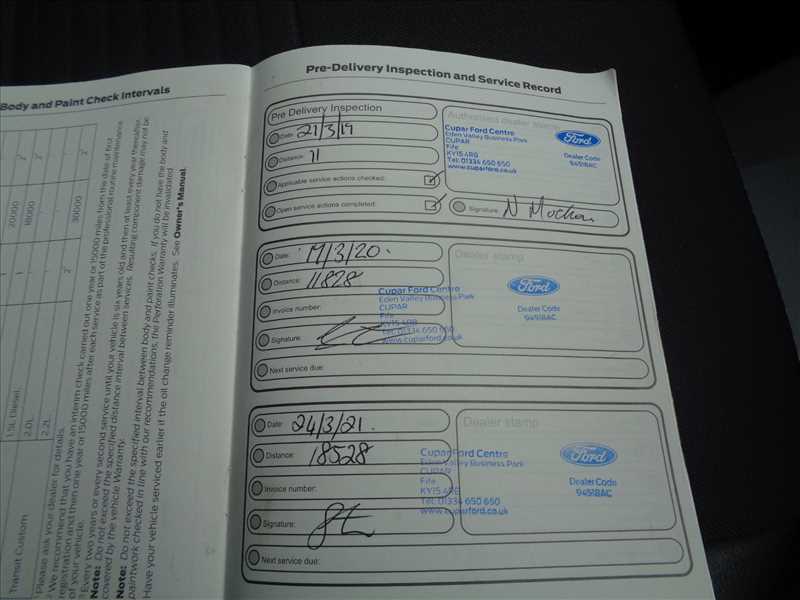 Body and Paint Check Intervals
20000
2
18000
2
30000
2
1
1
2
1.5L Diesel
2.0L
2.2L
Transit Custom
Please ask your dealer for details.
We recommend that you have an interim check carried out one year or 15000 miles from the date of first
registration and then one year or 15000 miles after each service as part of the professional routine maintenance
of your vehicle.
Every two years or every second service until your vehicle is six years old and then at least every year thereafter.
Note: Do not exceed the specified distance interval between services. Resulting component damage may not be
covered by the vehicle Warranty.
Note: Do not exceed the specified interval between body and paint checks. If you do not have the body and
paintwork checked in line with our recommendations, the Perforation Warranty will be invalidated
Have your vehicle serviced earlier if the oil change reminder illuminates. See Owner's Manual.
Pre-Delivery Inspection and Service Record
Pre Delivery Inspection
Date: 21/3/19
Distance: 11
Applicable service actions checked:
Open service actions completed:
Authorised dealer
Cupar Ford Centre
Eden Valley Business Park
CUPAR
Fife
KY15 4RB
Tel: 01334 650 650
www.cuparford.co.uk
Ford
Dealer Code
94518AC
Signature:
Date: 17/3/20
Distance: 11828
Invoice number:
Signature:
Next service due:
Dealer stamp
Cupar Ford Centre
Eden Valley Business Park
CUPAR
Fife
KY15 4RB
Tel: 01334 650 650
www.cuparford.co.uk
Ford
Dealer Code
94518AC
Date: 24/3/21
Distance: 18528
Invoice number:
Signature:
Next service due:
Dealer stamp
Cupar Ford Centre
Eden Valley Business Park
CUPAR
Fife
KY15 4RB
Tel: 01334 650 650
www.cuparford.co.uk
Ford
Dealer Code
94518AC